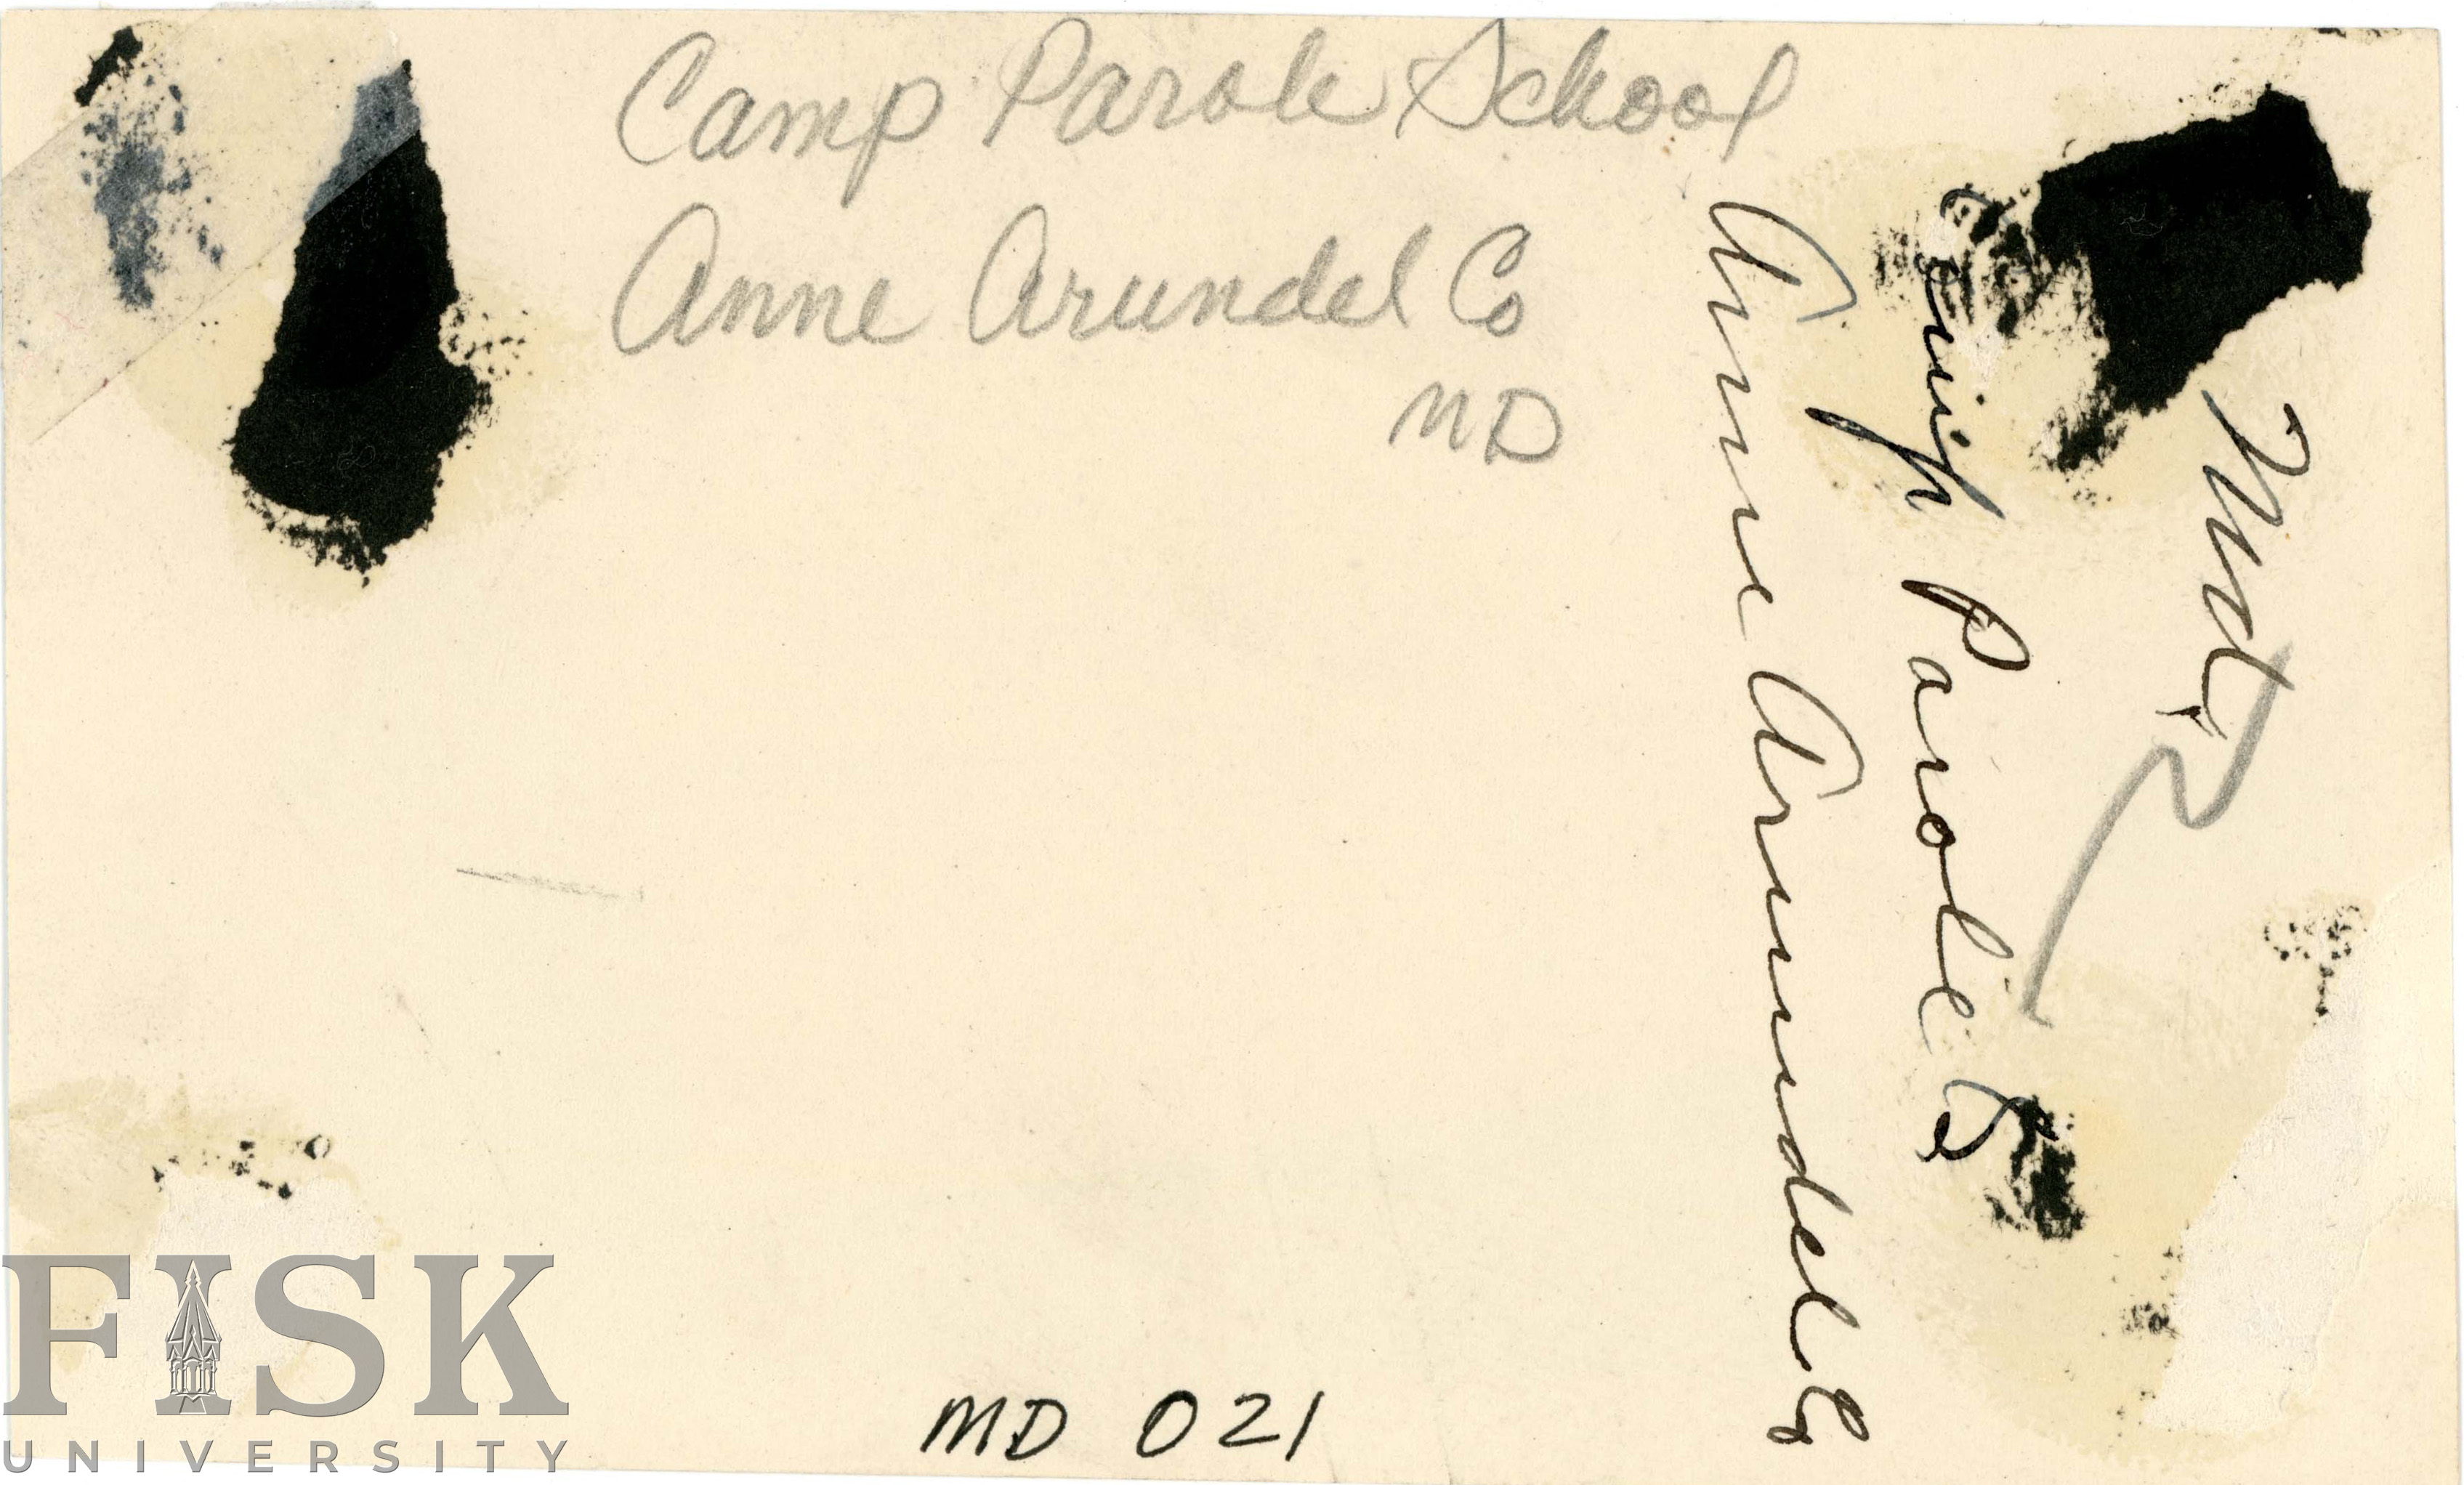 Camp Parole School
Anne Arundel Co
MD
Md.
Camp Parole
Anne Arundel Co
MD 021
FISK
UNIVERSITY